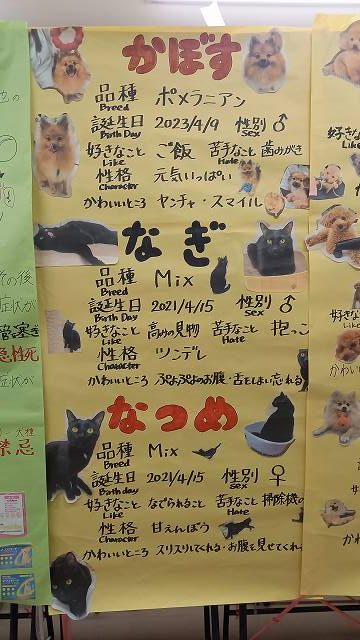 かぼす
品種 ポメラニアン
Breed
誕生日 2023/4/9 性別 ♂
Birth Day Sex
好きなこと ご飯 苦手なこと 歯みがき
Like Hate
性格 元気いっぱい
Character
かわいいところ ヤンチャ・スマイル
なぎ
品種 Mix
Breed
誕生日 2021/4/15 性別 ♂
Birth Day Sex
好きなこと 高めの見物 苦手なこと 抱っこ
Like Hate
性格 ツンデレ
Character
かわいいところ ぷよぷよのお腹・舌をしまい忘れる
なつめ
品種 Mix
Breed
誕生日 2021/4/15 性別 ♀
Birthday Sex
好きなこと なでられること 苦手なこと 掃除機の
Like Hate
性格 甘えんぼう
Character
かわいいところ スリスリしてくる・お腹を見せてくれ
その後
症状が
急性死
症状が
禁忌